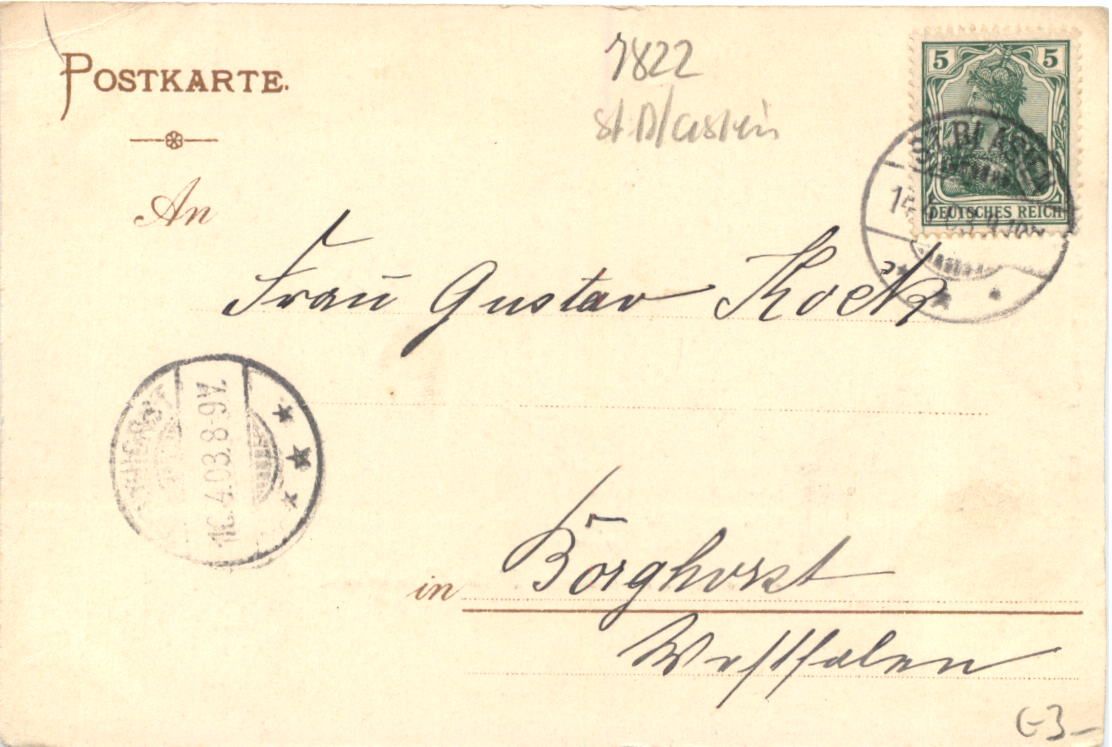 POSTKARTE.
7822
St. Blasien
5 5
DEUTSCHES REICH
ST. BLASIEN
14
An
Frau Gustav Kock
16.4.03.8-9V.
in Börghorst
Westfalen